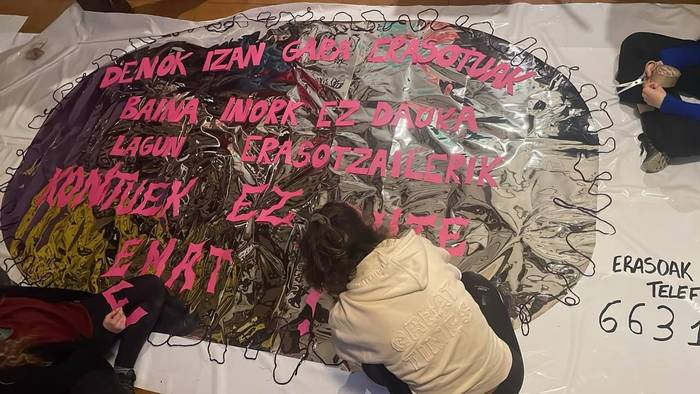 DENOK IZAN GARA ERASOTUAK
BAINA INORK EZ DAUKA
LAGUN ERASOTZAILERIK
KONTUEK EZ
EMAT
E
ERASOAK
TELEF
6631
GREAT
TIMES